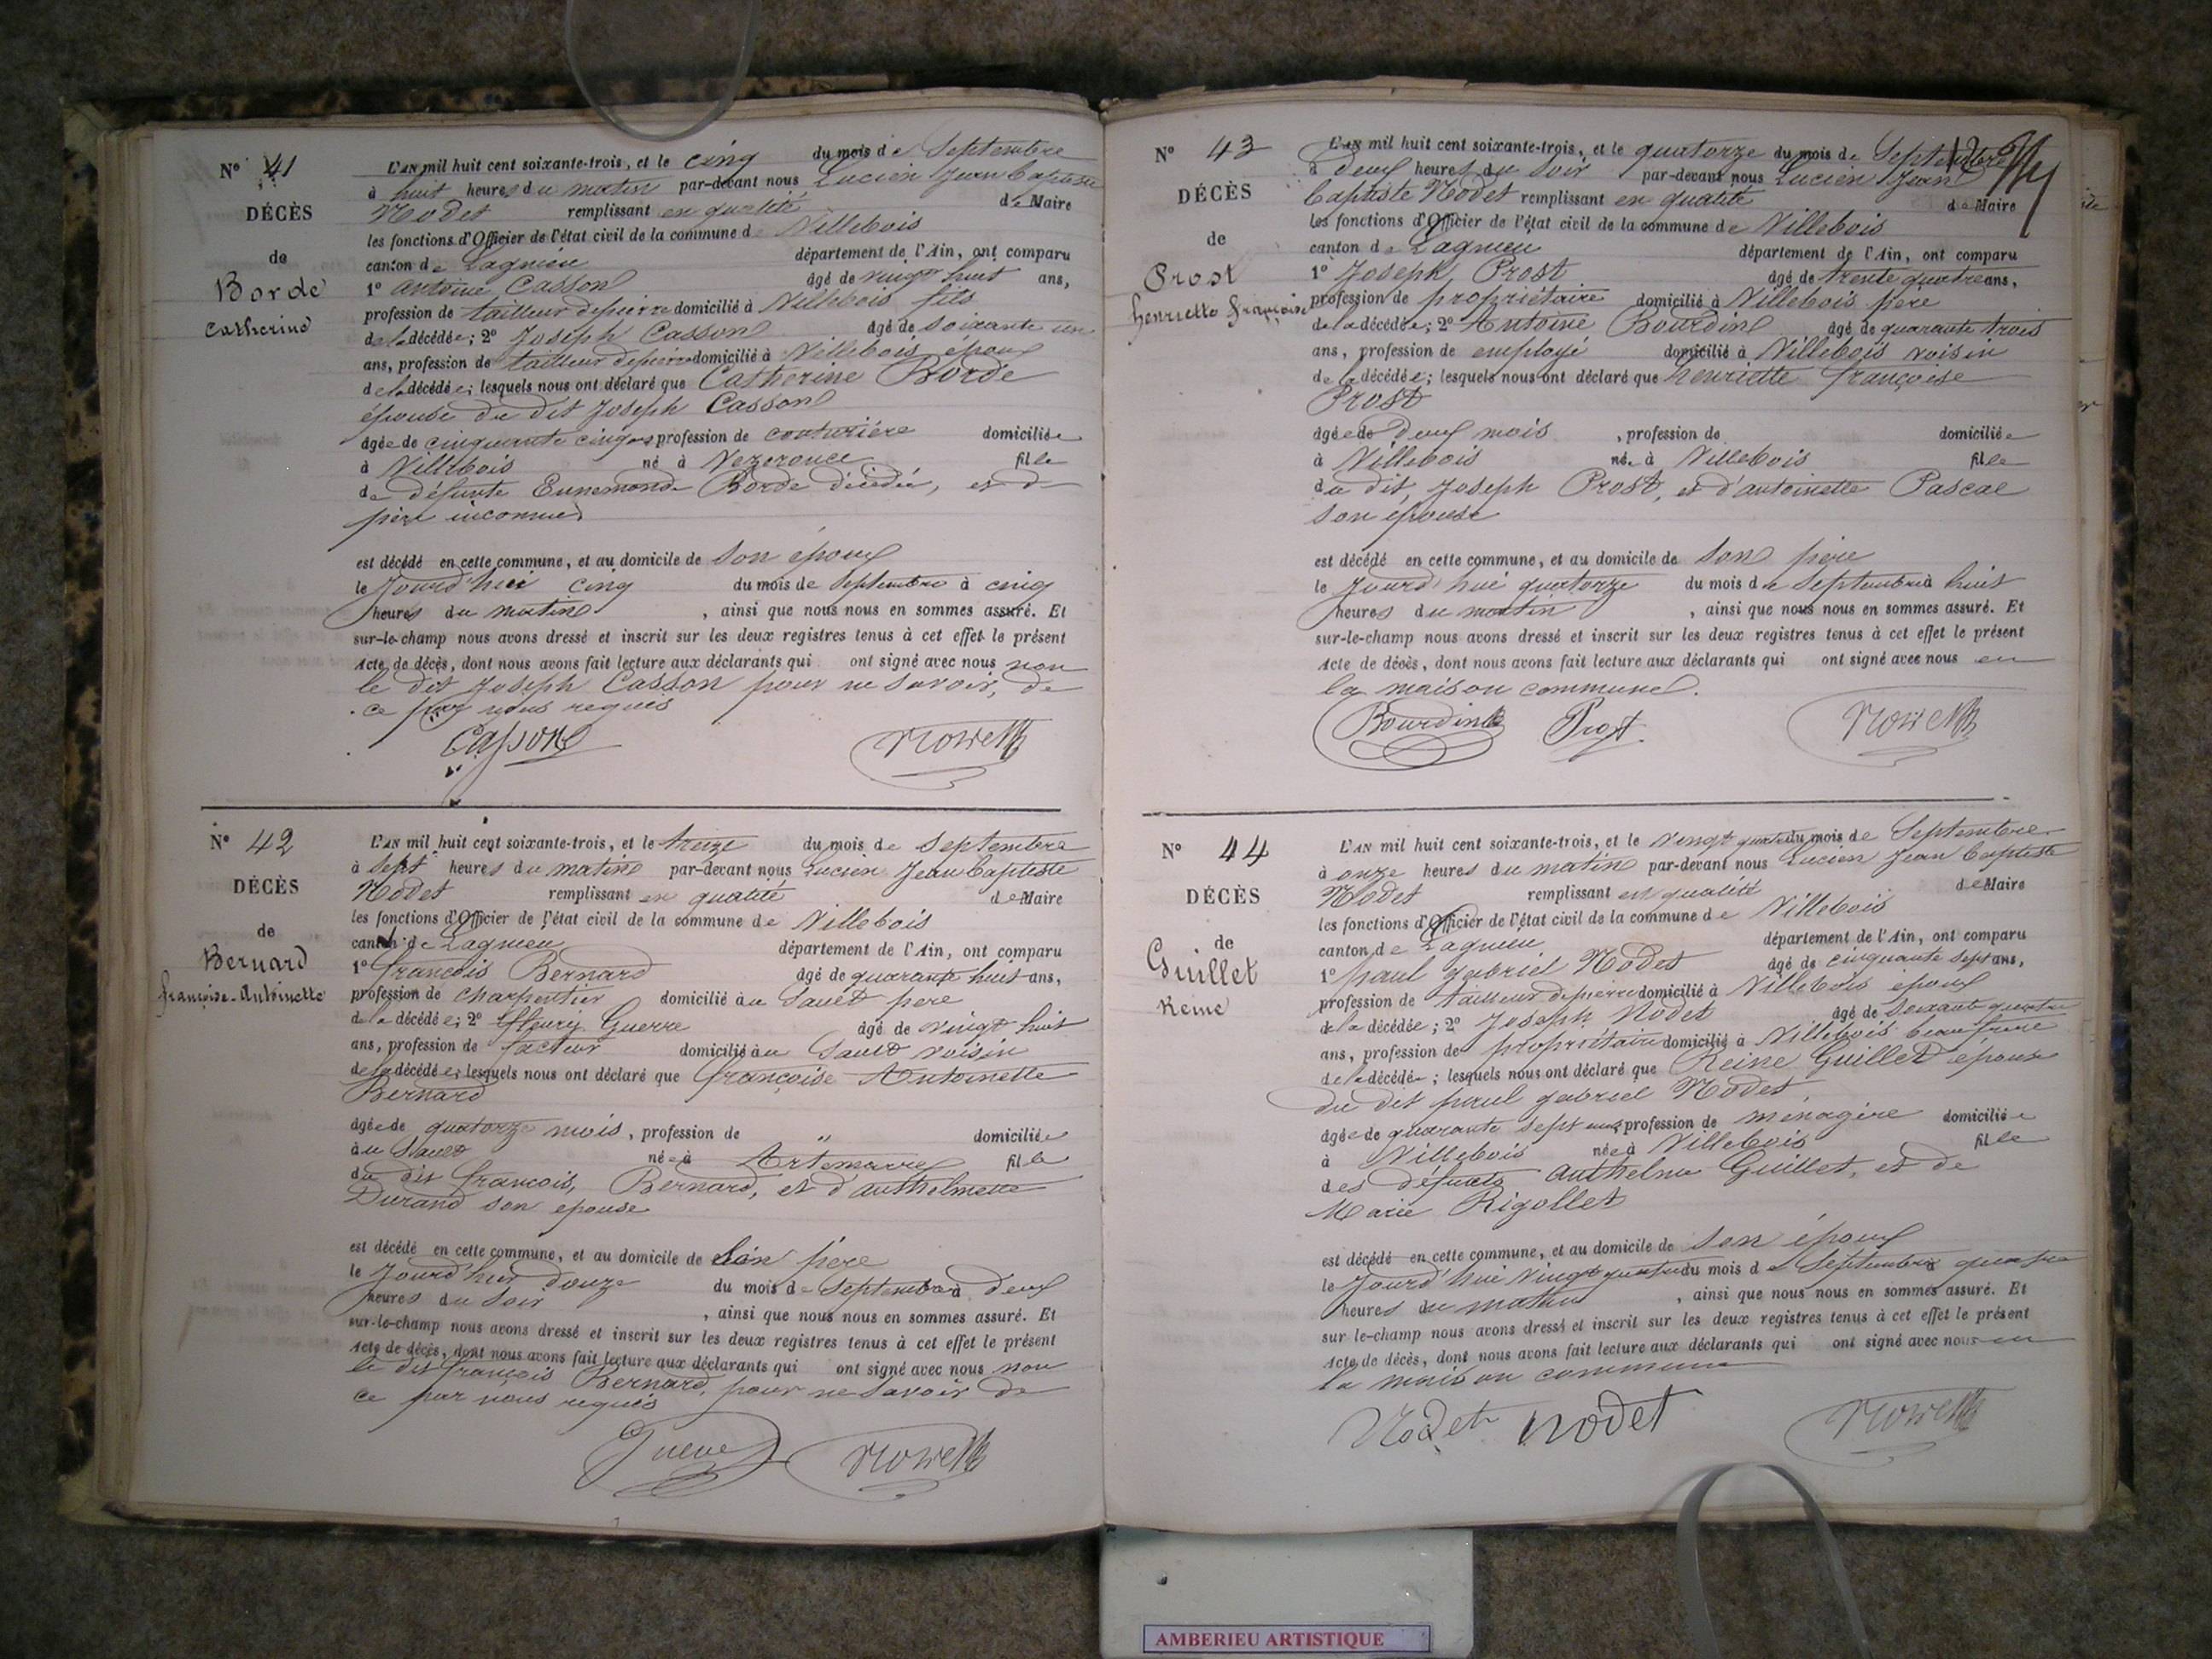 N° 41
DÉCÈS
de
Borde
Catherine
L'AN mil huit cent soixante-trois, et le cinq du mois de Septembre
à huit heures du matin par-devant nous Lucien Jean Baptiste
Nodet remplissant en qualité de Maire
les fonctions d'Officier de l'état civil de la commune de Villebois
canton de Lagnieu département de l'Ain, ont comparu
1° antoine Casson âgé de vingt huit ans,
profession de tailleur de pierre domicilié à Villebois fils
de la décédée; 2° Joseph Casson âgé de soixante un
ans, profession de tailleur de pierre domicilié à Villebois époux
de la décédée; lesquels nous ont déclaré que Catherine Borde
épouse du dit Joseph Casson
âgée de cinquante cinq ans profession de couturière domiciliée
à Villebois né à Vezeronce fille
de défunte Ennemonde Borde décédée, et de
père inconnu
est décédé en cette commune, et au domicile de son époux
le Jourd'hui cinq du mois de septembre à cinq
heures du matin, ainsi que nous nous en sommes assuré. Et
sur-le-champ nous avons dressé et inscrit sur les deux registres tenus à cet effet le présent
Acte de décès, dont nous avons fait lecture aux déclarants qui ont signé avec nous non
le dit Joseph Casson pour ne savoir, de
ce par nous requis
Casson
N° 42
DÉCÈS
de
Bernard
françoise-Antoinette
L'AN mil huit cent soixante-trois, et le treize du mois de Septembre
à sept heures du matin par-devant nous Lucien Jean Baptiste
Nodet remplissant en qualité de Maire
les fonctions d'Officier de l'état civil de la commune de Villebois
canton de Lagnieu département de l'Ain, ont comparu
1° françois Bernard âgé de quarante huit ans,
profession de charpentier domicilié au Sault pere
de la décédée; 2° fleury Guerre âgé de vingt huit
ans, profession de facteur domicilié au Sault voisin
de la décédée; lesquels nous ont déclaré que françoise Antoinette
Bernard
âgée de quatorze mois, profession de " domiciliée
au Sault née à Artemare fille
du dit françois, Bernard, et d'anthelmette
Durand son epouse
est décédé en cette commune, et au domicile de son père
le Jourd'hui douze du mois de Septembre à deux
heures du soir, ainsi que nous nous en sommes assuré. Et
sur-le-champ nous avons dressé et inscrit sur les deux registres tenus à cet effet le présent
Acte de décès, dont nous avons fait lecture aux déclarants qui ont signé avec nous non
le dit françois Bernard, pour ne savoir de
ce par nous requis
N° 43
DÉCÈS
de
Prost
henriette françoise
L'AN mil huit cent soixante-trois, et le quatorze du mois de Septembre
à deux heures du soir par-devant nous Lucien Jean
Baptiste Nodet remplissant en qualité de Maire
les fonctions d'Officier de l'état civil de la commune de Villebois
canton de Lagnieu département de l'Ain, ont comparu
1° Joseph Prost âgé de trente quatre ans,
profession de propriétaire domicilié à Villebois père
de la décédée; 2° Antoine Bourdin âgé de quarante trois
ans, profession de employé domicilié à Villebois voisin
de la décédée; lesquels nous ont déclaré que henriette françoise
Prost
âgée de deux mois, profession de domiciliée
à Villebois née à Villebois fille
du dit, Joseph Prost, et d'antoinette Pascal
son épouse
est décédé en cette commune, et au domicile de son père
le Jourd'hui quatorze du mois de septembre à huit
heures du matin, ainsi que nous nous en sommes assuré. Et
sur-le-champ nous avons dressé et inscrit sur les deux registres tenus à cet effet le présent
Acte de décès, dont nous avons fait lecture aux déclarants qui ont signé avec nous en
la maison commune.
Bourdin Prost
N° 44
DÉCÈS
de
Guillet
Reine
L'AN mil huit cent soixante-trois, et le vingt quatre du mois de Septembre
à onze heures du matin par-devant nous Lucien Jean Baptiste
Nodet remplissant en qualité de Maire
les fonctions d'Officier de l'état civil de la commune de Villebois
canton de Lagnieu département de l'Ain, ont comparu
1° paul gabriel Nodet âgé de cinquante sept ans,
profession de tailleur de pierre domicilié à Villebois époux
de la décédée; 2° Joseph Nodet âgé de soixante quatre
ans, profession de propriétaire domicilié à Villebois beau frere
de la décédée; lesquels nous ont déclaré que Reine Guillet épouse
du dit paul gabriel Nodet
âgée de quarante sept ans profession de ménagère domiciliée
à Villebois née à Villebois fille
des défunts Anthelme Guillet, et de
Marie Rigollet
est décédé en cette commune, et au domicile de son époux
le Jourd'hui vingt quatre du mois de Septembre quatre
heures du matin, ainsi que nous nous en sommes assuré. Et
sur le-champ nous avons dressé et inscrit sur les deux registres tenus à cet effet le présent
Acte de décès, dont nous avons fait lecture aux déclarants qui ont signé avec nous en
la maison commune
Nodet nodet
AMBERIEU ARTISTIQUE